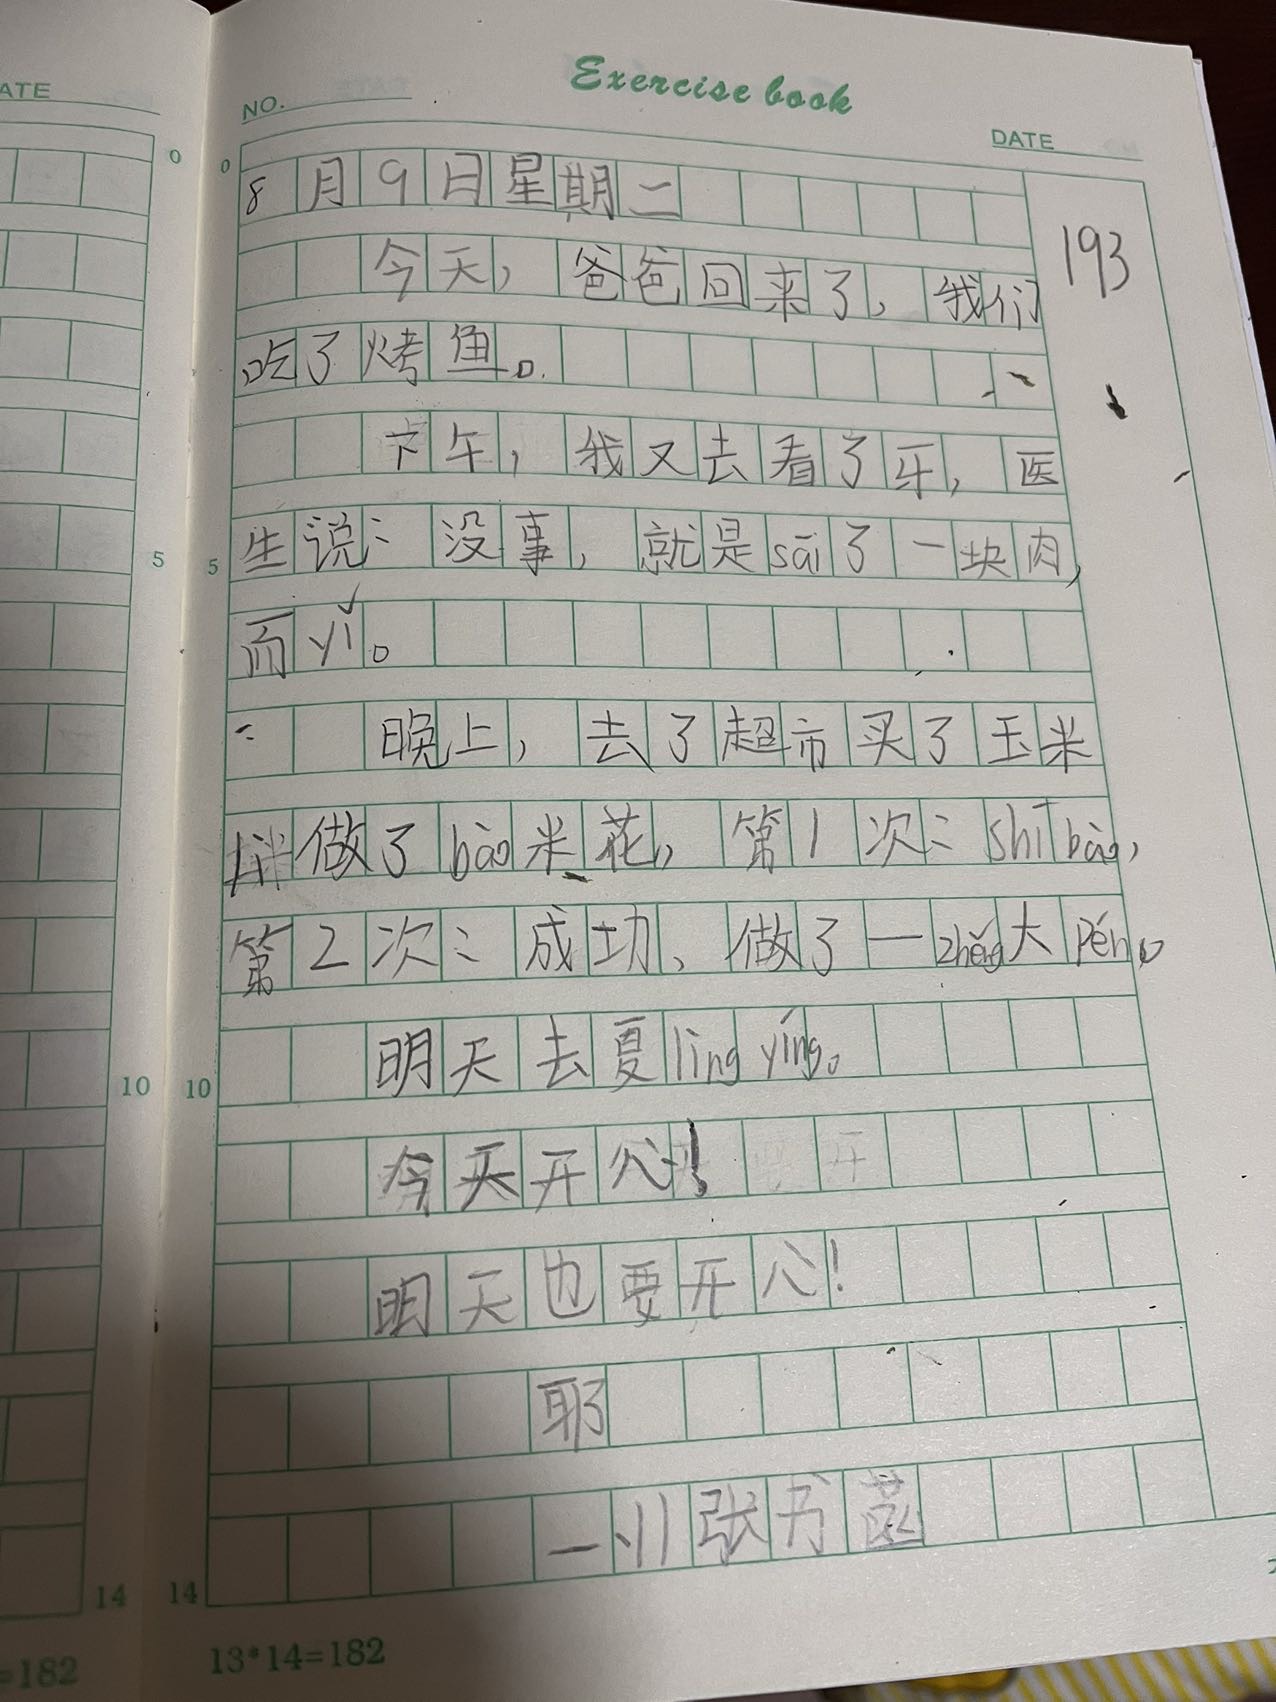 ATE
NO.
Exercise book
DATE
0
0
8月9日星期二
193
今天，爸爸回来了，我们
吃了烤鱼。
下午，我又去看了牙，医
5
5
生说：没事，就是sāi了一块肉，
而yǐ。
晚上，去了超市买了玉米
做了bào米花，第1次：shī bài，
第2次：成功、做了一zhěng大pén。
明天去夏lìng yíng。
10
10
今天开心！
明天也要开心！
耶
一川张书菡
14
14
=182
13*14=182